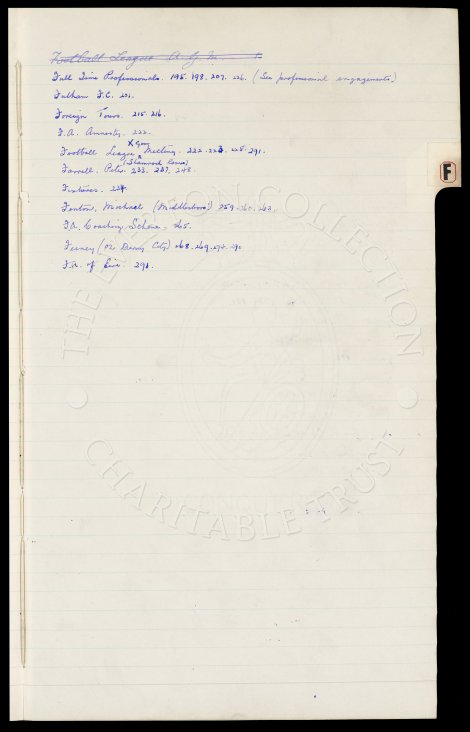 Football League A.G.M.
Full Time Professionals. 195. 198. 207. 226. (See professional engagements)
Fulham F.C. 201.
Foreign Tours. 215. 216.
F.A. Amnesty. 222.
Football League X Meeting. 222. 223. 225. 291.
Farrell. Peter. (Shamrock Rovers) 233. 237. 248.
Fixtures.
Fenton, Michael (Middlesboro') 259. 260. 263.
F.A. Coaching Scheme. 265.
Feeney (Derry City) 268. 269. 274. 290
F.A. of Eire. 291.
F
THE EVERTON COLLECTION
CHARITABLE TRUST